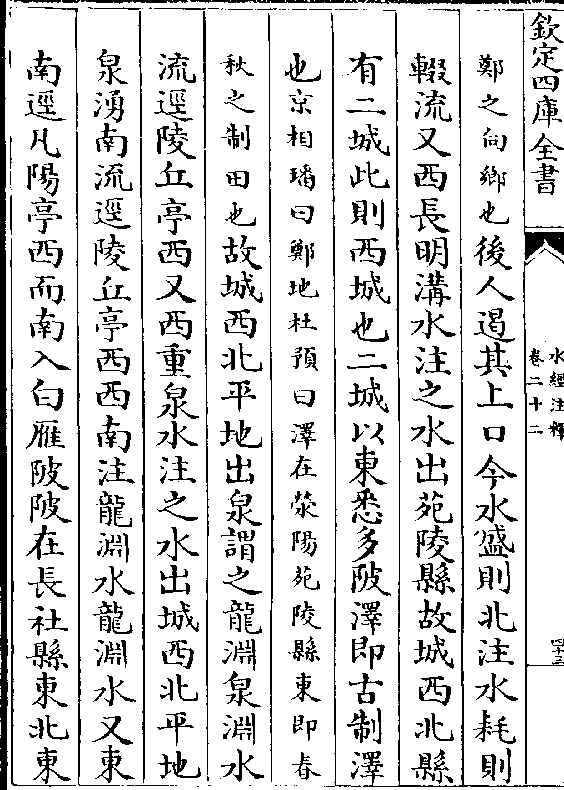 欽定四庫全書
水經注釋
卷二十二
四十三
鄭之向鄉也後人遏其上口今水盛則北注水耗則
輟流又西長明溝水注之水出苑陵縣故城西北縣
有二城此則西城也二城以東悉多陂澤即古制澤
也京相璠曰鄭地杜預曰澤在滎陽苑陵縣東即春
秋之制田也故城西北平地出泉謂之龍淵泉淵水
流逕陵丘亭西又西重泉水注之水出城西北平地
泉湧南流逕陵丘亭西西南注龍淵水龍淵水又東
南逕凡陽亭西而南入白雁陂陂在長社縣東北東